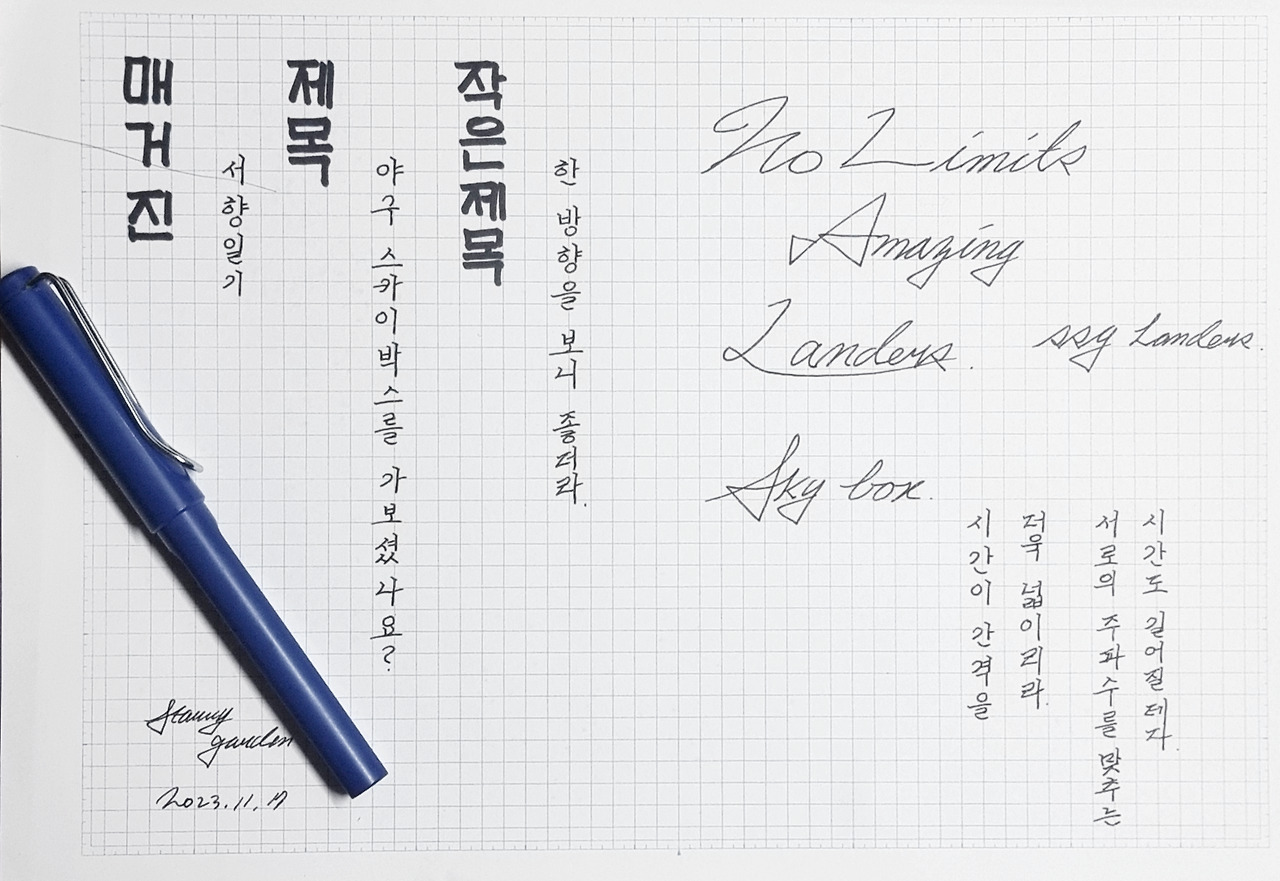 매거진
서향일기
제목
야구 스카이박스를 가보셨나요?
작은제목
한 방향을 보니 좋더라.
No Limits
Amazing
Landers.
ssg Landers.
Sky box.
시간이 간격을
더욱 넓이리라.
서로의 주파수를 맞추는
시간도 길어질 테지.
Starry
garden
2023.11.17